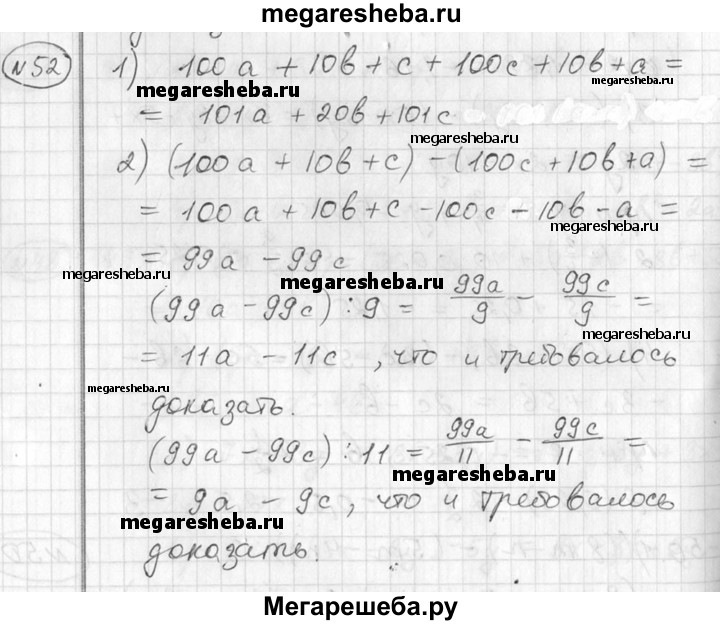 megaresheba.ru
№52 1) 100a + 10b + c + 100c + 10b + a =
megaresheba.ru
= 101a + 20b + 101c
megaresheba.ru
2) (100a + 10b + c) - (100c + 10b + a) =
= 100a + 10b + c - 100c - 10b - a =
= 99a - 99c
megaresheba.ru
megaresheba.ru
(99a - 99c) : 9 = 99a/9 - 99c/9 =
megaresheba.ru
= 11a - 11c , что и требовалось
megaresheba.ru
доказать.
(99a - 99c) : 11 = 99a/11 - 99c/11 =
megaresheba.ru
= 9a - 9c, что и требовалось
megaresheba.ru
доказать.
Мегарешеба.ру